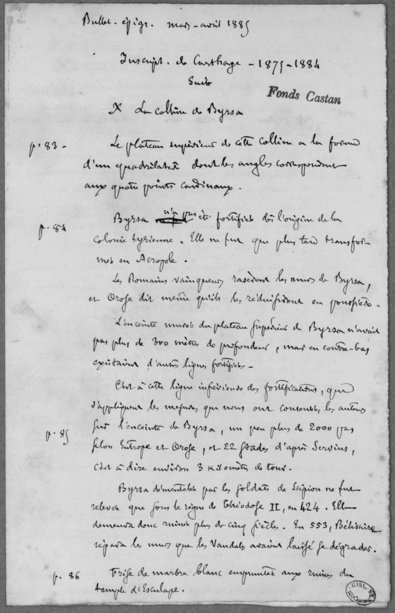 Bullet. épigr. mars-avril 1885
Inscript. de Carthage - 1875-1884
Suite
Fonds Castan
X La colline de Byrsa
p. 83 - Le plateau supérieur de cette colline a la forme
d'un quadrilatère dont les angles correspondent
aux quatre points cardinaux.
p. 84 Byrsa n'a pas été fortifiée dès l'origine de la
colonie tyrienne. Elle ne fut que plus tard transfor-
mée en Acropole.
Les Romains vainqueurs rasèrent les murs de Byrsa,
et Orose dit même qu'ils les réduisirent en poussière.
L'enceinte murée du plateau supérieur de Byrsa n'avait
pas plus de 300 mètres de profondeur, mais en contre-bas
existaient d'autres lignes fortifiées -
C'est à cette ligne inférieure des fortifications, que
s'appliquent les mesures, que nous ont conservées les auteurs
sur l'enceinte de Byrsa, un peu plus de 2000 pas
p. 85 selon Eutrope et Orose, et 22 stades d'après Servius,
c'est à dire environ 3 kilomètres de tour.
Byrsa démantelée par les soldats de Scipion ne fut
relevée que sous le règne de Théodose II, en 424. Elle
demeura donc ruinée plus de cinq siècles. En 553, Bélisaire
répara les murs que les Vandales avaient laissé se dégrader.
p. 86 Frise de marbre blanc empruntée aux ruines du
temple d'Esculape.